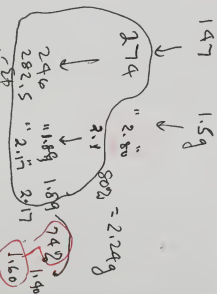 147 ↙ 1.5g
274 " 2.80
2.1
80% = 2.24g
246 " 1.89 1.89
282.5 " 2.17 2.17
742
1.40
1.60